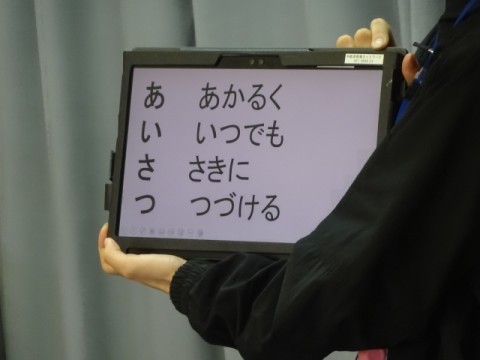 あ あかるく
い いつでも
さ さきに
つ つづける